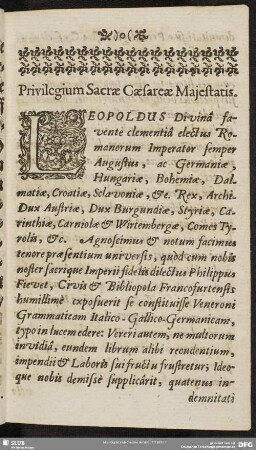 )o(
Privilegium Sacræ Cæsareæ Majestatis.
LEOPOLDUS Divinâ fa-
vente clementiâ electus Ro-
manorum Imperator semper
Augustus, ac Germaniæ,
Hungariæ, Bohemiæ, Dal-
matiæ, Croatiæ, Sclavoniæ, &c. Rex, Archi-
Dux Austriæ, Dux Burgundiæ, Styriæ, Ca-
rinthiæ, Carniolæ & Wirtembergæ, Comes Ty-
rolis, &c. Agnoscimus & notum facimus
tenore præsentium universis, quòd cum nobis
noster sacrique Imperii fidelis dilectus Philippus
Fievet, Civis & Bibliopola Francofurtensis
humillimè exposuerit se constituisse Veneroni
Grammaticam Italico-Gallico-Germanicam,
typo in lucem edere: Vereri autem, ne multorum
invidiâ, eundem librum alibi recudentium,
impendii & Laboris sui fructu frustretur; Ideo-
que nobis demissè supplicârit, quatenus in-
demnitati
SLUB